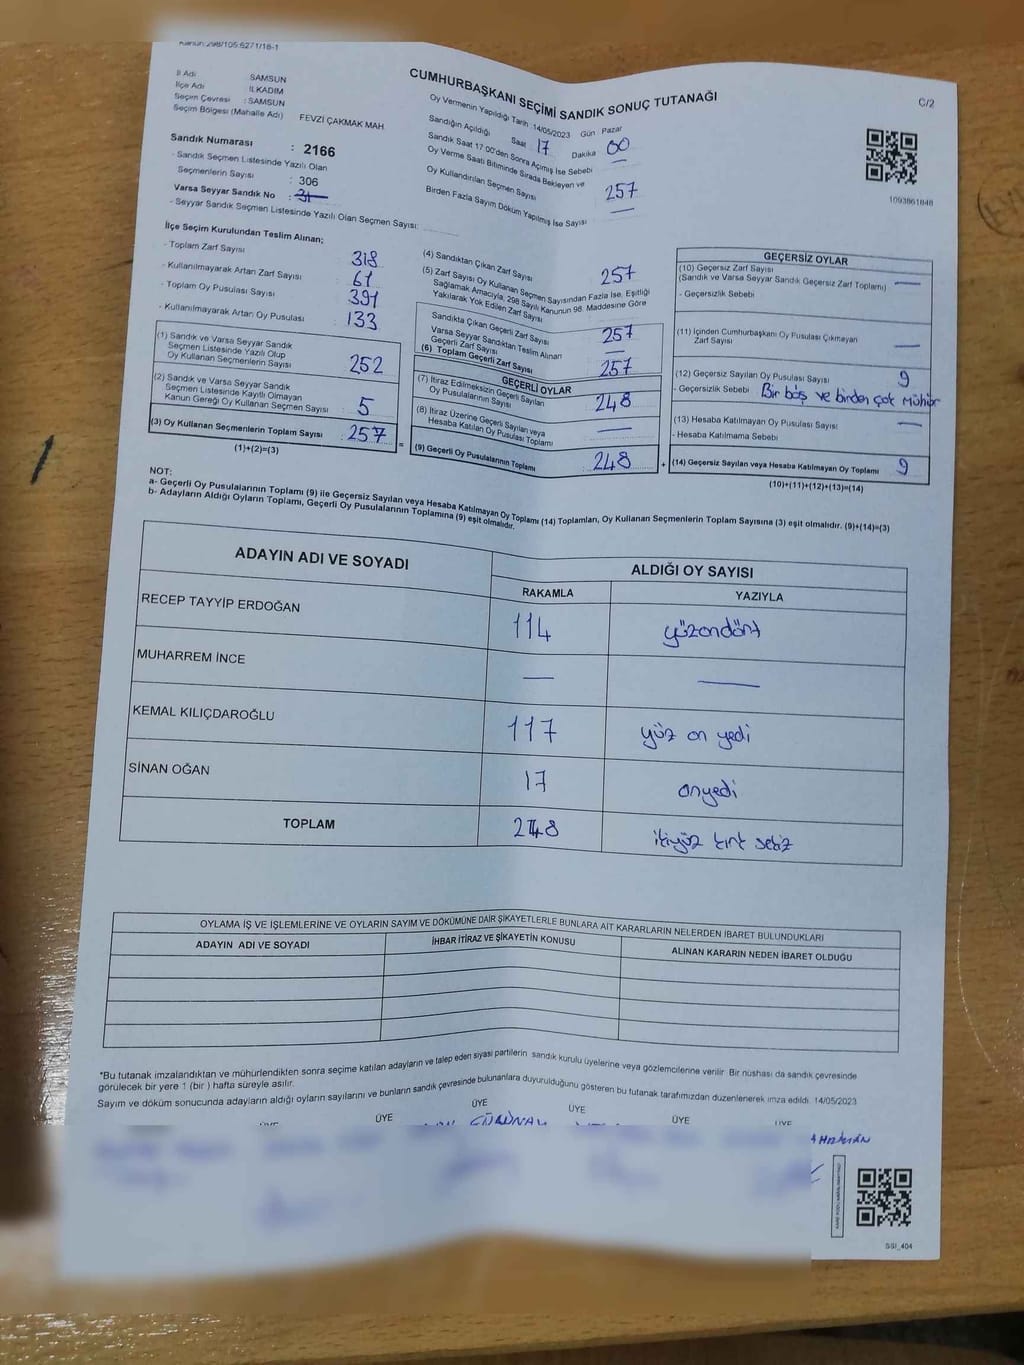 Kanun:298/105:6271/18-1
CUMHURBAŞKANI SEÇİMİ SANDIK SONUÇ TUTANAĞI
C/2
İl Adı SAMSUN
İlçe Adı İLKADIM
Seçim Çevresi : SAMSUN
Seçim Bölgesi (Mahalle Adı) FEVZİ ÇAKMAK MAH.
Sandık Numarası : 2166
- Sandık Seçmen Listesinde Yazılı Olan
Seçmenlerin Sayısı : 306
Varsa Seyyar Sandık No :
- Seyyar Sandık Seçmen Listesinde Yazılı Olan Seçmen Sayısı:
Oy Vermenin Yapıldığı Tarih : 14/05/2023 Gün : Pazar
Sandığın Açıldığı Saat 17 Dakika 00
Sandık Saat 17:00'den Sonra Açılmış İse Sebebi —
Oy Verme Saati Bitiminde Sırada Bekleyen ve
Oy Kullandırılan Seçmen Sayısı 257
Birden Fazla Sayım Döküm Yapılmış İse Sayısı —
1093861848
İlçe Seçim Kurulundan Teslim Alınan;
- Toplam Zarf Sayısı 318
- Kullanılmayarak Artan Zarf Sayısı 61
- Toplam Oy Pusulası Sayısı 391
- Kullanılmayarak Artan Oy Pusulası 133
(1) Sandık ve Varsa Seyyar Sandık
Seçmen Listesinde Yazılı Olup
Oy Kullanan Seçmenlerin Sayısı 252
(2) Sandık ve Varsa Seyyar Sandık
Seçmen Listesinde Kayıtlı Olmayan
Kanun Gereği Oy Kullanan Seçmen Sayısı 5
(3) Oy Kullanan Seçmenlerin Toplam Sayısı : 257
(1)+(2)=(3)
(4) Sandıktan Çıkan Zarf Sayısı 257
(5) Zarf Sayısı Oy Kullanan Seçmen Sayısından Fazla İse, Eşitliği
Sağlamak Amacıyla, 298 Sayılı Kanunun 98. Maddesine Göre
Yakılarak Yok Edilen Zarf Sayısı
Sandıkta Çıkan Geçerli Zarf Sayısı 257
Varsa Seyyar Sandıktan Teslim Alınan
Geçerli Zarf Sayısı —
(6) Toplam Geçerli Zarf Sayısı 257
GEÇERLİ OYLAR
(7) İtiraz Edilmeksizin Geçerli Sayılan
Oy Pusulalarının Sayısı 248
(8) İtiraz Üzerine Geçerli Sayılan veya
Hesaba Katılan Oy Pusulası Toplamı —
(9) Geçerli Oy Pusulalarının Toplamı 248
GEÇERSİZ OYLAR
(10) Geçersiz Zarf Sayısı
(Sandık ve Varsa Seyyar Sandık Geçersiz Zarf Toplamı) —
- Geçersizlik Sebebi
(11) İçinden Cumhurbaşkanı Oy Pusulası Çıkmayan
Zarf Sayısı —
(12) Geçersiz Sayılan Oy Pusulası Sayısı 9
- Geçersizlik Sebebi Bir boş ve birden çok mühür
(13) Hesaba Katılmayan Oy Pusulası Sayısı —
- Hesaba Katılmama Sebebi
(14) Geçersiz Sayılan veya Hesaba Katılmayan Oy Toplamı 9
(10)+(11)+(12)+(13)=(14)
NOT:
a- Geçerli Oy Pusulalarının Toplamı (9) ile Geçersiz Sayılan veya Hesaba Katılmayan Oy Toplamı (14) Toplamları, Oy Kullanan Seçmenlerin Toplam Sayısına (3) eşit olmalıdır. (9)+(14)=(3)
b- Adayların Aldığı Oyların Toplamı, Geçerli Oy Pusulalarının Toplamına (9) eşit olmalıdır.
ADAYIN ADI VE SOYADI ALDIĞI OY SAYISI
RAKAMLA YAZIYLA
RECEP TAYYİP ERDOĞAN 114 yüzondört
MUHARREM İNCE — —
KEMAL KILIÇDAROĞLU 117 yüz on yedi
SİNAN OĞAN 17 onyedi
TOPLAM 248 ikiyüz kırk sekiz
OYLAMA İŞ VE İŞLEMLERİNE VE OYLARIN SAYIM VE DÖKÜMÜNE DAİR ŞİKAYETLERLE BUNLARA AİT KARARLARIN NELERDEN İBARET BULUNDUKLARI
ADAYIN ADI VE SOYADI İHBAR İTİRAZ VE ŞİKAYETİN KONUSU ALINAN KARARIN NEDEN İBARET OLDUĞU
*Bu tutanak imzalandıktan ve mühürlendikten sonra seçime katılan adayların ve talep eden siyasi partilerin sandık kurulu üyelerine veya gözlemcilerine verilir. Bir nüshası da sandık çevresinde
görülecek bir yere 1 (bir) hafta süreyle asılır.
Sayım ve döküm sonucunda adayların aldığı oyların sayılarını ve bunların sandık çevresinde bulunanlara duyurulduğunu gösteren bu tutanak tarafımızdan düzenlenerek imza edildi. 14/05/2023
ÜYE ÜYE ÜYE ÜYE ÜYE ÜYE
SSİ_404